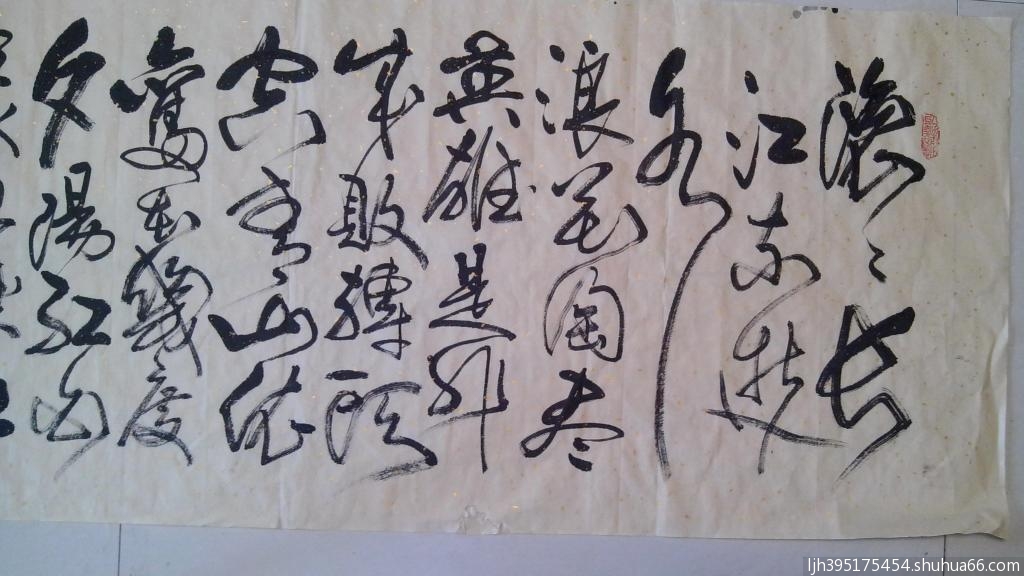 滚〻长
江东逝
水
浪花淘尽
英雄是非
成败转头
空青山依
旧在几度
夕阳红白
ljh395175454.shuhua66.com